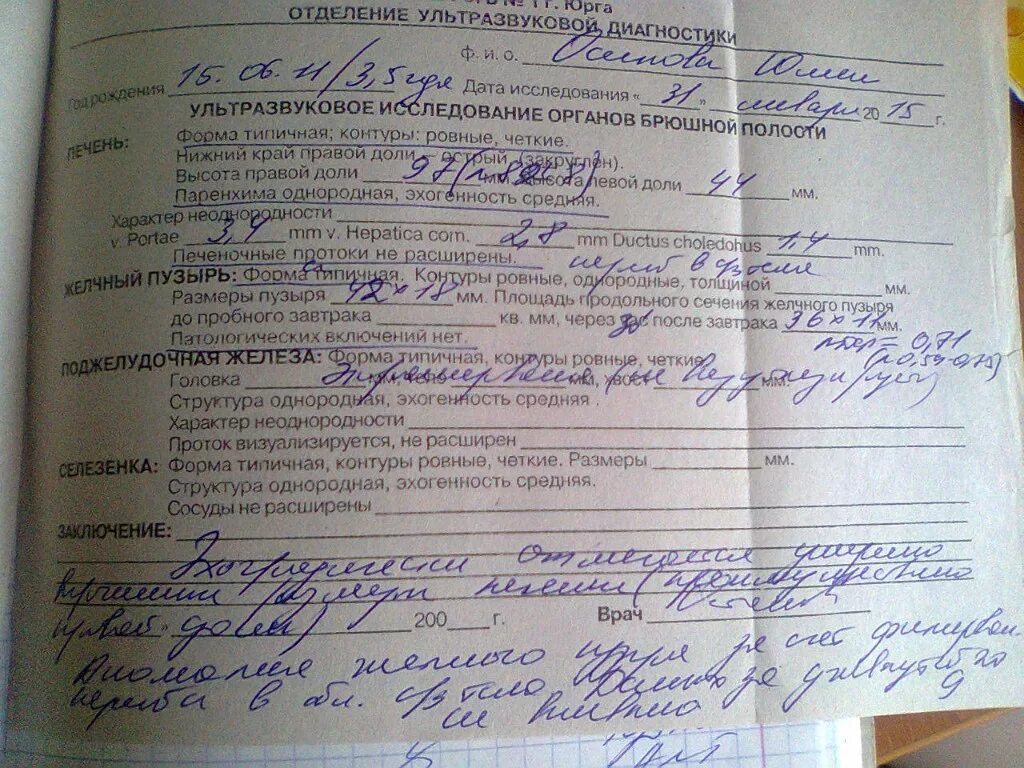 г. Юрга
ОТДЕЛЕНИЕ УЛЬТРАЗВУКОВОЙ ДИАГНОСТИКИ
Ф. И. О.
Год рождения 15.06.11/3,5 года Дата исследования «31» января 2015 г.
УЛЬТРАЗВУКОВОЕ ИССЛЕДОВАНИЕ ОРГАНОВ БРЮШНОЙ ПОЛОСТИ
ПЕЧЕНЬ: Форма типичная; контуры: ровные, четкие.
Нижний край правой доли – острый (закруглен).
Высота правой доли 97 мм, высота левой доли 44 мм.
Паренхима однородная, эхогенность средняя.
Характер неоднородности
v. Portae 3,4 mm v. Hepatica com. 2,8 mm Ductus choledohus 1,4 mm.
Печеночные протоки не расширены. перегиб в
ЖЕЛЧНЫЙ ПУЗЫРЬ: Форма типичная. Контуры ровные, однородные, толщиной мм.
Размеры пузыря 42×18 мм. Площадь продольного сечения желчного пузыря
до пробного завтрака кв. мм, через после завтрака 36×11 мм.
Патологических включений нет. = 0,71
ПОДЖЕЛУДОЧНАЯ ЖЕЛЕЗА: Форма типичная, контуры ровные, четкие
Головка мм, тело мм, хвост мм.
Структура однородная, эхогенность средняя .
Характер неоднородности
Проток визуализируется, не расширен
СЕЛЕЗЕНКА: Форма типичная, контуры ровные, четкие. Размеры мм.
Структура однородная, эхогенность средняя.
Сосуды не расширены
ЗАКЛЮЧЕНИЕ:
Эхографически отмечается умеренно
размеры печени (преимущественно
правой доли) 200 г. Врач
Аномалия желчного за счет
перегиба в обл.